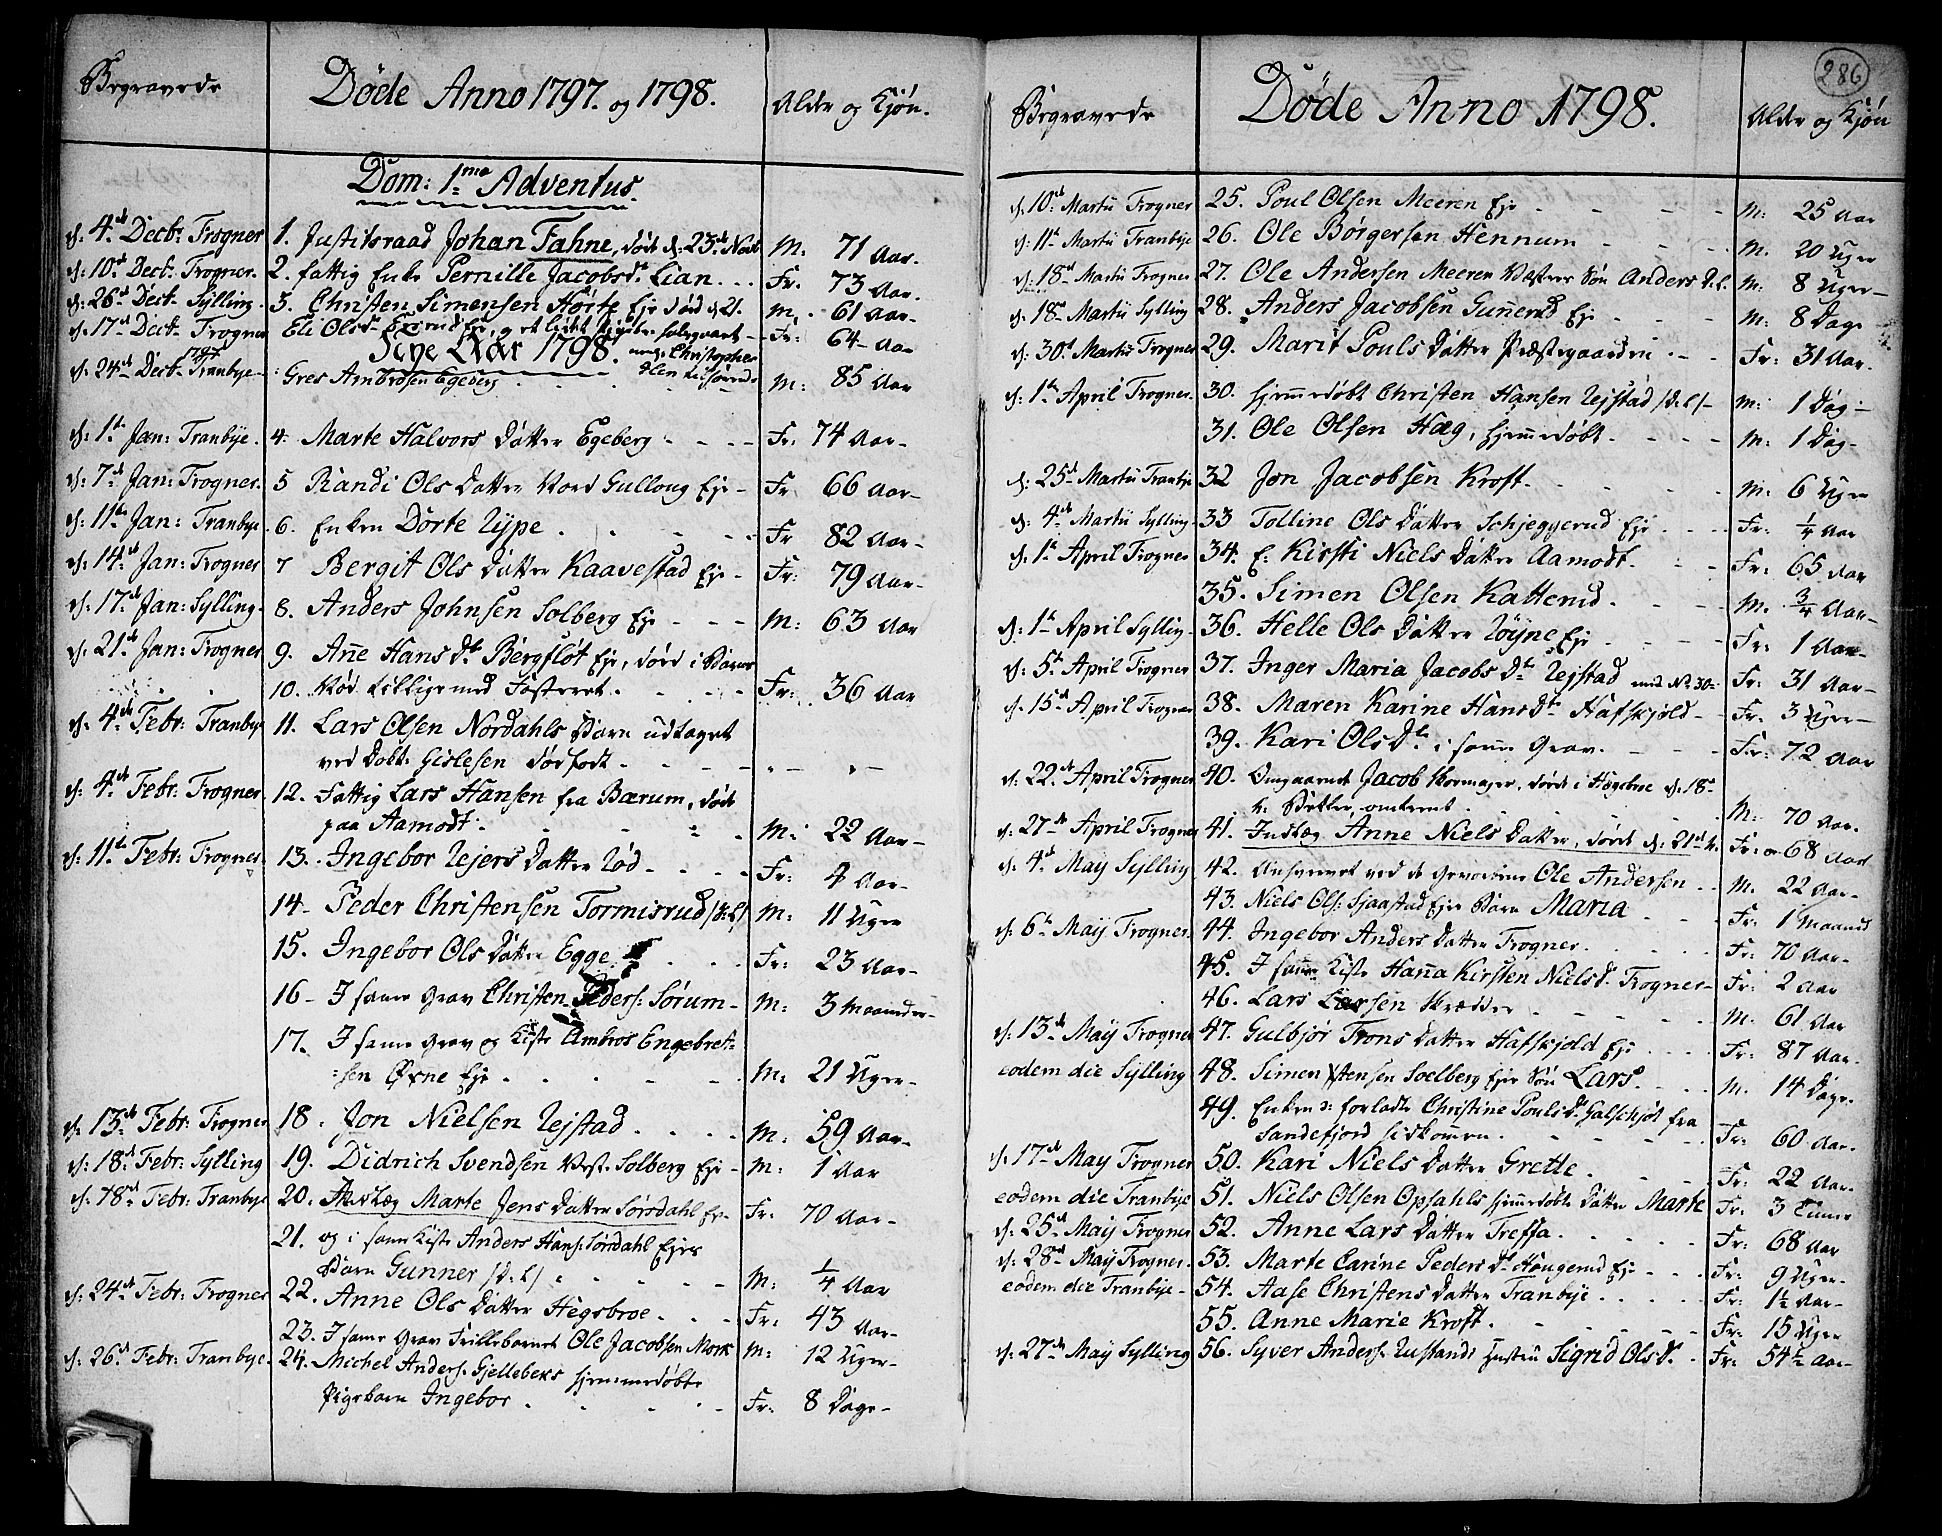 Begravede
Døde Anno 1797. og 1798.
Alder og Kjøn.
Dom: 1.ma Adventus.
d: 4.de Decbr. Trogner 1. Justitsraad Johan Fahne, døde d: 23.de Novbr M: 71 Aar.
d: 10.de Decbr. Trogner. 2. fattig Enke Pernille Jacobsdr. Lian Fr: 73 Aar.
d: 26.de Decbr. Sylling. 3. Christen Simensen Hørte Eje død d: 21. M: 61 Aar-
d: 17.de Decbr. Trogner Eli Olsdr. Eje, og et lidet Fr: 64 Aar
Nye Aar 1798.
d: 24.de Decbr. 1797 Tranbye- Gres Ambrosen Egeberg M: 85 Aar
d: 1.te Jan: Tranbye. 4. Marte Halvors Datter Egeberg Fr: 74 Aar-
d: 7.de Jan: Trogner. 5 Randi Ols Datter Nord Gulloug Eje- Fr 66 Aar-
d: 11.te Jan: Tranbye. 6. Enken Dorte Lype Fr 82 Aar-
d: 14.de Jan: Trogner 7 Bergit Ols Datter Kaavestad Eje- Fr: 79 Aar-
d: 17.de Jan: Sylling. 8. Anders Johnsen Solberg Eje M: 63 Aar
d: 21.de Jan: Trogner 9. Anne Hans Dr. Bergfløt Eje, død i Barns
10. Nød tillige med Fosteret. Fr: 36 Aar
d: 4.de Febr: Tranbye 11. Lars Olsen Nordahls Barn udtaget
ved Dobt. Gislesen dødfødt
d: 4.de Febr: Trogner 12. Fattig Lars Hansen fra Bærum, døde
paa Aamodt. M: 22 Aar-
d: 11.te Febr: Trogner 13. Ingebor Lejers Datter Lød Fr: 4 Aar-
14- Peder Christensen Tormisrud /d:L/ M: 11 Uger
15. Ingebor Ols Datter Egge Fr: 23 Aar-
16- I same Grav Christen Peders: Sørum- M: 3 Maaneder-
17. I same Grav og Kiste Ambros Engebret-
:sen Øxne Eje. M: 21 Uger-
d: 13.de Febr: Trogner 18. Jon Nielsen Lejstad M: 59 Aar-
d: 18.de Febr: Sylling 19. Didrich Svendsen Vest. Solberg Eje- M: 1 Aar
d: 18.de Febr: Tranbye 20. Indlæg Marte Jens Datter Sørsdahl Eje- Fr: 70 Aar-
21. og i same Kiste Anders Hans: Sørsdahl Ejes
Barn Gunner /d:L/ M: 1/4 Aar
d: 24.de Febr: Trogner 22. Anne Ols Datter Hegsbroe. Fr: 43 Aar-
23. I same Grav Frillebarnet Ole Jacobsen Mork M: 12 Uger-
d: 26.de Febr: Tranbye. 24. Michel Anders: Gjellebeks hjemmedøbte
Pigebarn Ingebor Fr: 8 Dage-
286
Begravede
Døde Anno 1798.
Alder og Kjøn
d: 10.de Martii Trogner 25. Poul Olsen Meeren Eje M: 25 Aar
d: 11.te Martii Tranbye 26. Ole Børgersen Hennum M: 20 Uger
d: 18.de Martii Trogner 27. Ole Andersen Meeren Vestres Søn Anders d:L. M: 8 Uger-
d: 18.de Martii Sylling 28. Anders Jacobsen Gunnerud Eje M: 8 Dage
d: 30.de Martii Trogner 29. Marit Pouls Datter Præstegaarden Fr: 31 Aar.
d: 1.te April Trogner. 30. hjemmedøbt Christen Hansen Lejstad /d:L/- M: 1 Dag-
31. Ole Olsen Hæg, hjemmedøbt. M: 1 Dag-
d: 25.de Martii Tranbye 32 Jon Jacobsen Kroft. M: 6 Uger
d: 4.de Martii Sylling. 33 Tolline Ols Datter Schjeggerud Eje Fr: 1/4 Aar
d: 1.te April Trogner 34. E: Kirsti Niels Datter Aamodt. Fr: 65 Aar
35. Simen Olsen Katterud. M: 3/4 Aar-
d: 1.te April Sylling- 36. Helle Ols Datter Løyne Eje Fr: 1 Aar-
d: 5.te April Trogner 37. Inger Maria Jacobs Dtr. Lejstad med No. 30- Fr: 31 Aar-
d: 15.de April Trogner 38. Maren Karine Hans Dtr. Hafskjold- Fr: 3 Uger-
39. Kari Ols Dtr. i same Grav. Fr: 72 Aar
d: 22.de April Trogner 40. Jacob Kormajer, døde i Hegsbroe d: 18.de
M: 70 Aar.
d: 27.de April Trogner 41. Indlæg Anne Niels Datter, døde d: 21.de Fr: 68 Aar
d: 4.de May Sylling 42. ved de Ole Andersen M: 22 Aar-
43. Niels Ols: Sjaastad Ejes Barn Maria Fr: 1 Maaned
d: 6.te May Trogner. 44. Ingebor Anders Datter Trogner. Fr: 70 Aar-
45. I same Kiste Hanna Kirsten Niels D. Trogner- Fr: 2 Aar
46. Lars Larsen Skrædder M: 61 Aar
d: 13.de May Trogner 47. Gulbjør Trons Datter Hafskjold Eje Fr: 87 Aar.
eodem die Sylling 48. Simen Stensen Soelberg Ejes Søn Lars. M: 14 Dage.
49. Enken forladte Christine Pouls D. Galschjøt fra
Sandefjord hidkommen. Fr: 60 Aar.
d: 17.de May Trogner 50. Kari Niels Datter Grette. Fr: 22 Aar.
eodem die Tranbye 51. Niels Olsen Opsahls hjemmedøbte Datter Marte Fr: 3 Timer
d: 25.de May Trogner 52. Anne Lars Datter Treffa. Fr: 68 Aar
d: 28.de May Trogner. 53. Marte Carine Peders D. Haugerud Eje Fr: 9 Uger-
eodem die Tranbye- 54. Aase Christens Datter Tranbye Fr: 1 1/2 Aar-
55. Anne Marie Kroft. Fr: 15 Uger
d: 27.de May Sylling 56. Syver Anders: Lustands Hustru Sigrid Ols D. Fr: 54 1/2 Aar-